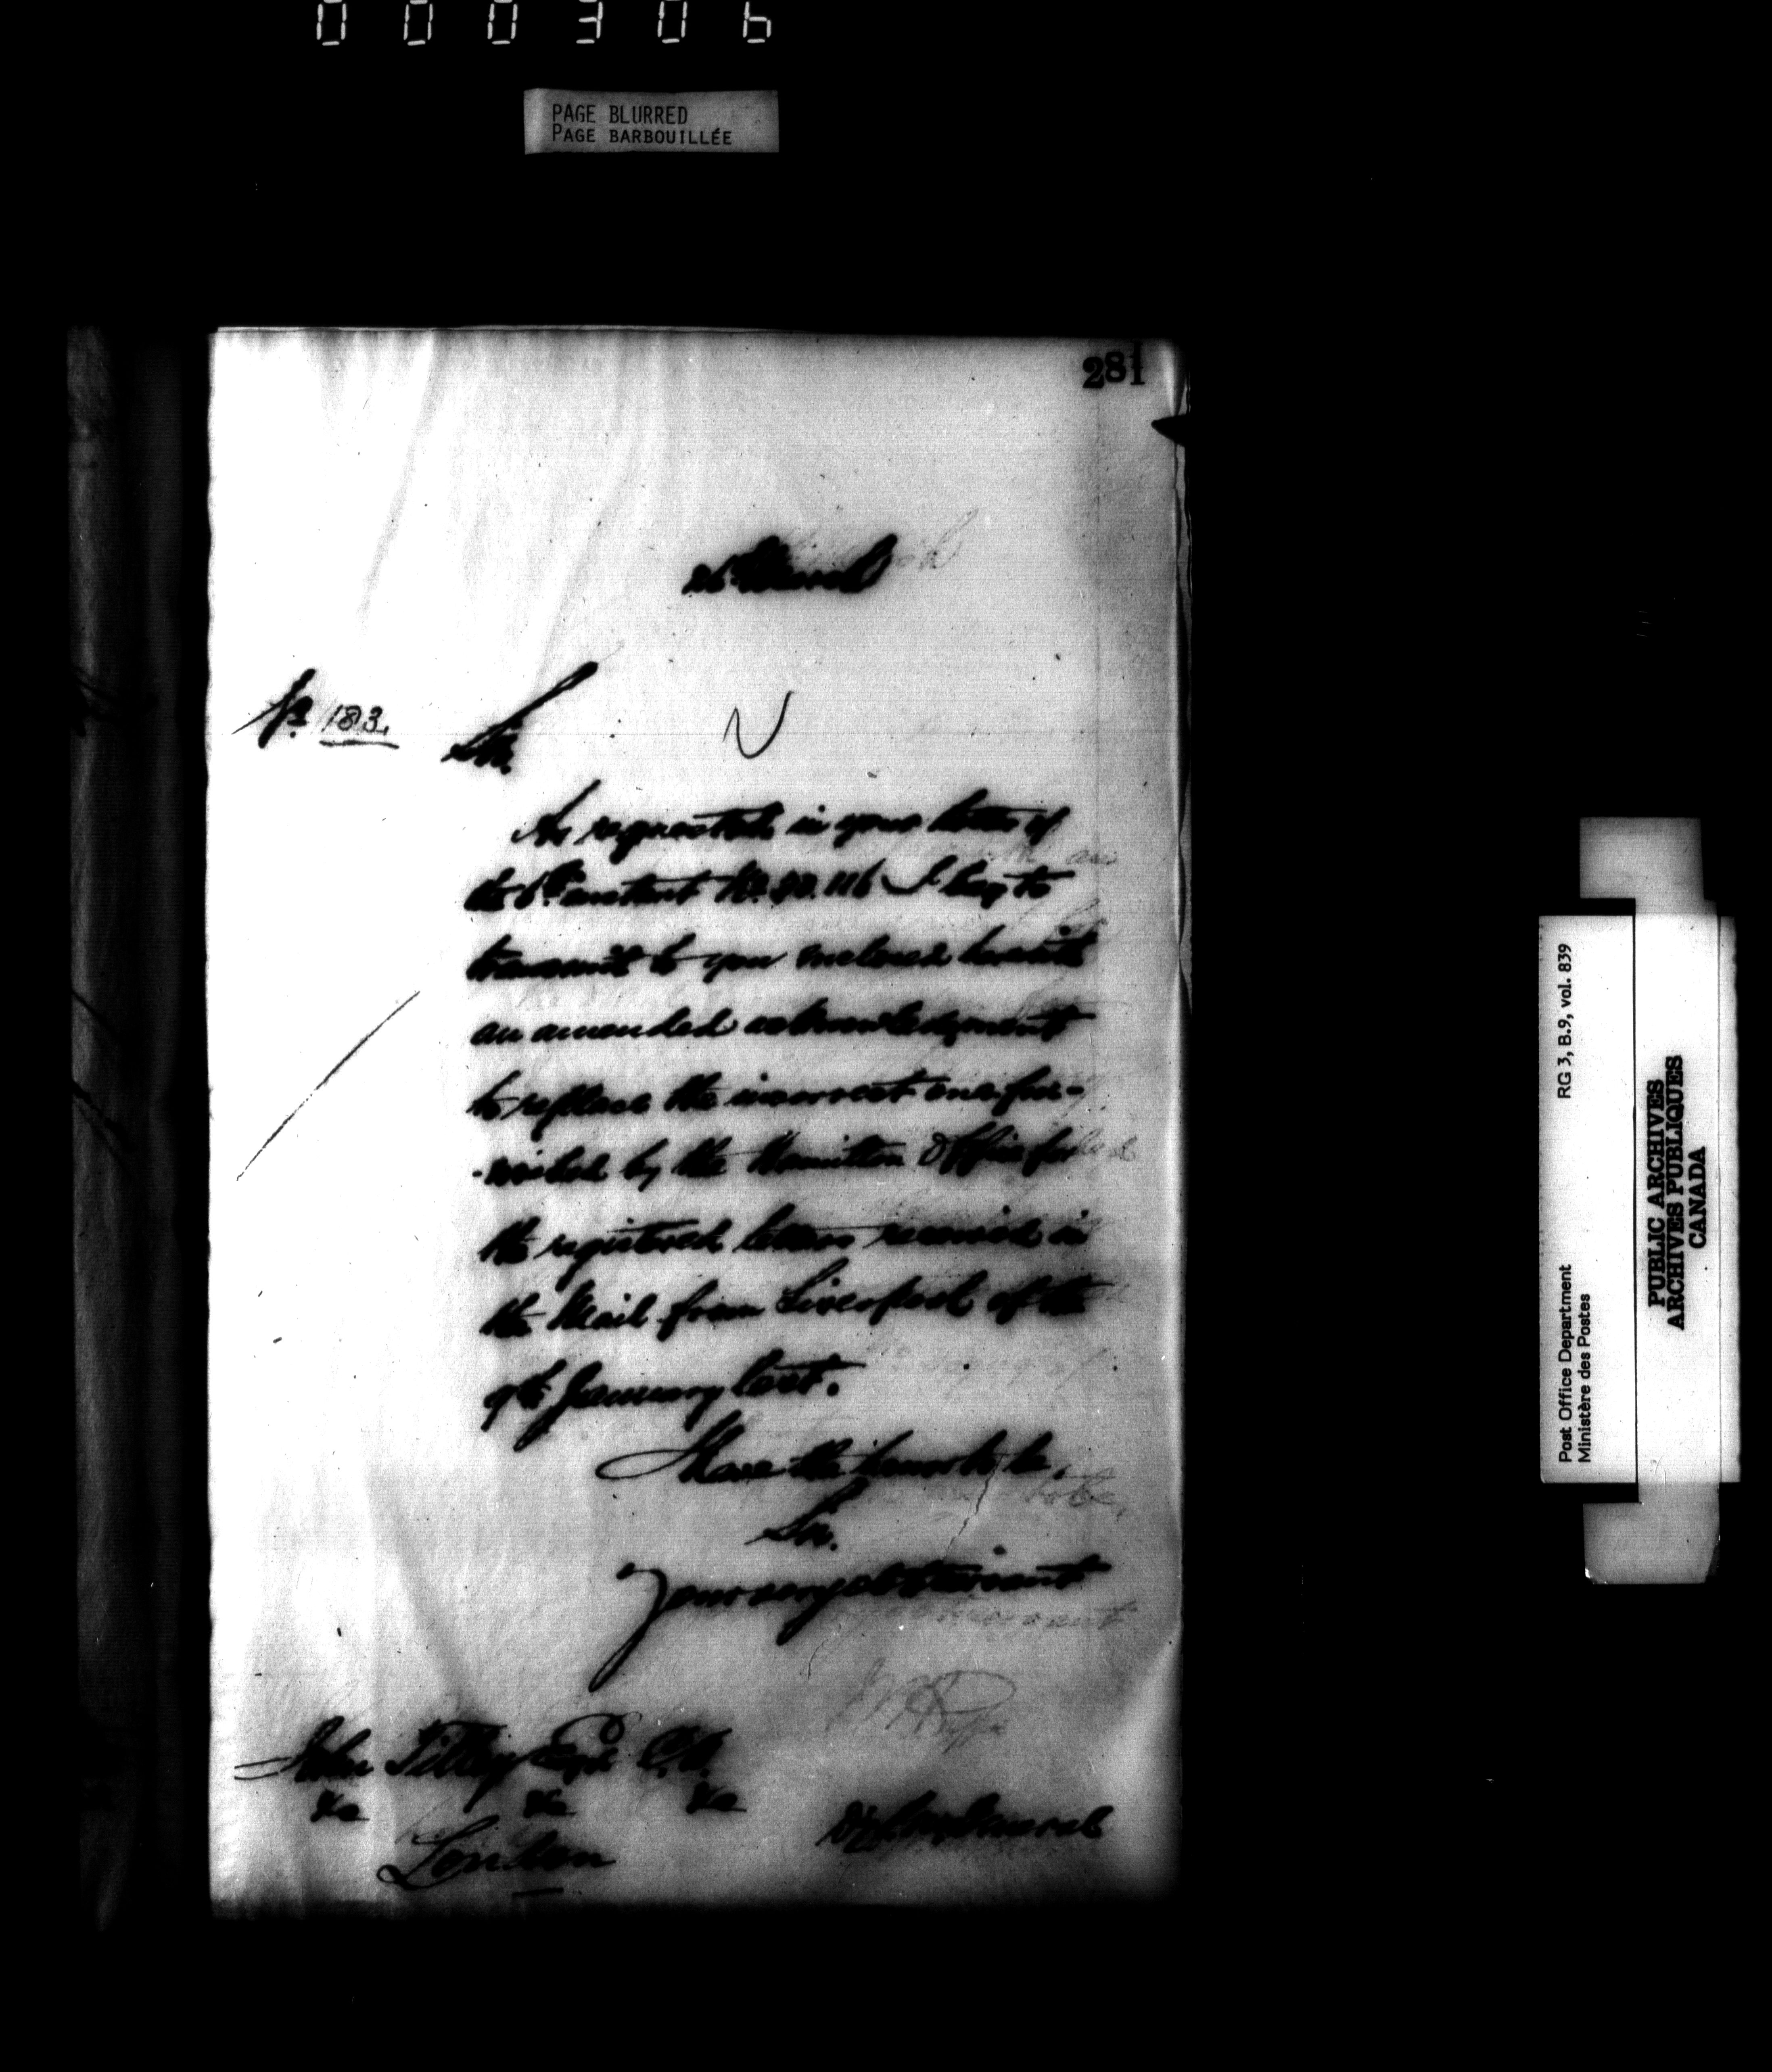 000306
PAGE BLURRED
PAGE BARBOUILLÉE
281
26th March
No. 183.
Sir,
As requested in your letter of
the 6th instant No. 116 I beg to
transmit to you enclosed herewith
an amended acknowledgment
to replace the incorrect one for-
-warded by the Hamilton Office for
the registered letters received in
the Mail from Liverpool of the
9th January last.
I have the honor to be,
Sir,
Your very obt servant
John Tilley Esqr C.B.
&c &c &c
London
General
Post Office Department RG 3, B.9, vol. 839
Ministère des Postes
PUBLIC ARCHIVES
ARCHIVES PUBLIQUES
CANADA